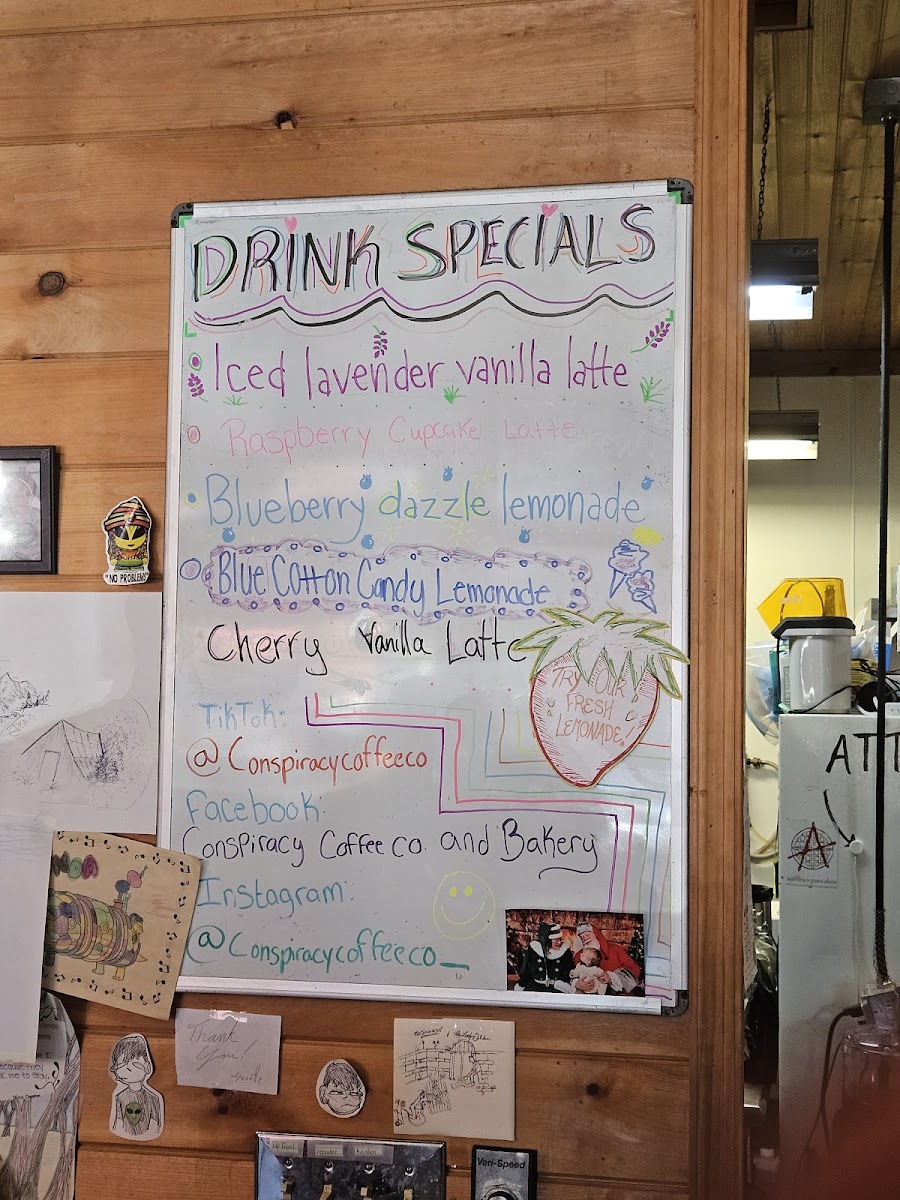 DRINK SPECIALS
Iced lavender vanilla latte
Raspberry Cupcake Latte
Blueberry dazzle lemonade
Blue Cotton Candy Lemonade
Cherry Vanilla Latte
TRY OUR
FRESH
LEMONADE!
TikTok:
@Conspiracycoffeeco
Facebook
Conspiracy Coffee co. and Bakery
Instagram:
@Conspiracycoffeeco_
"NO PROBLEM"
ATT
Thank
You!
Veri-Speed